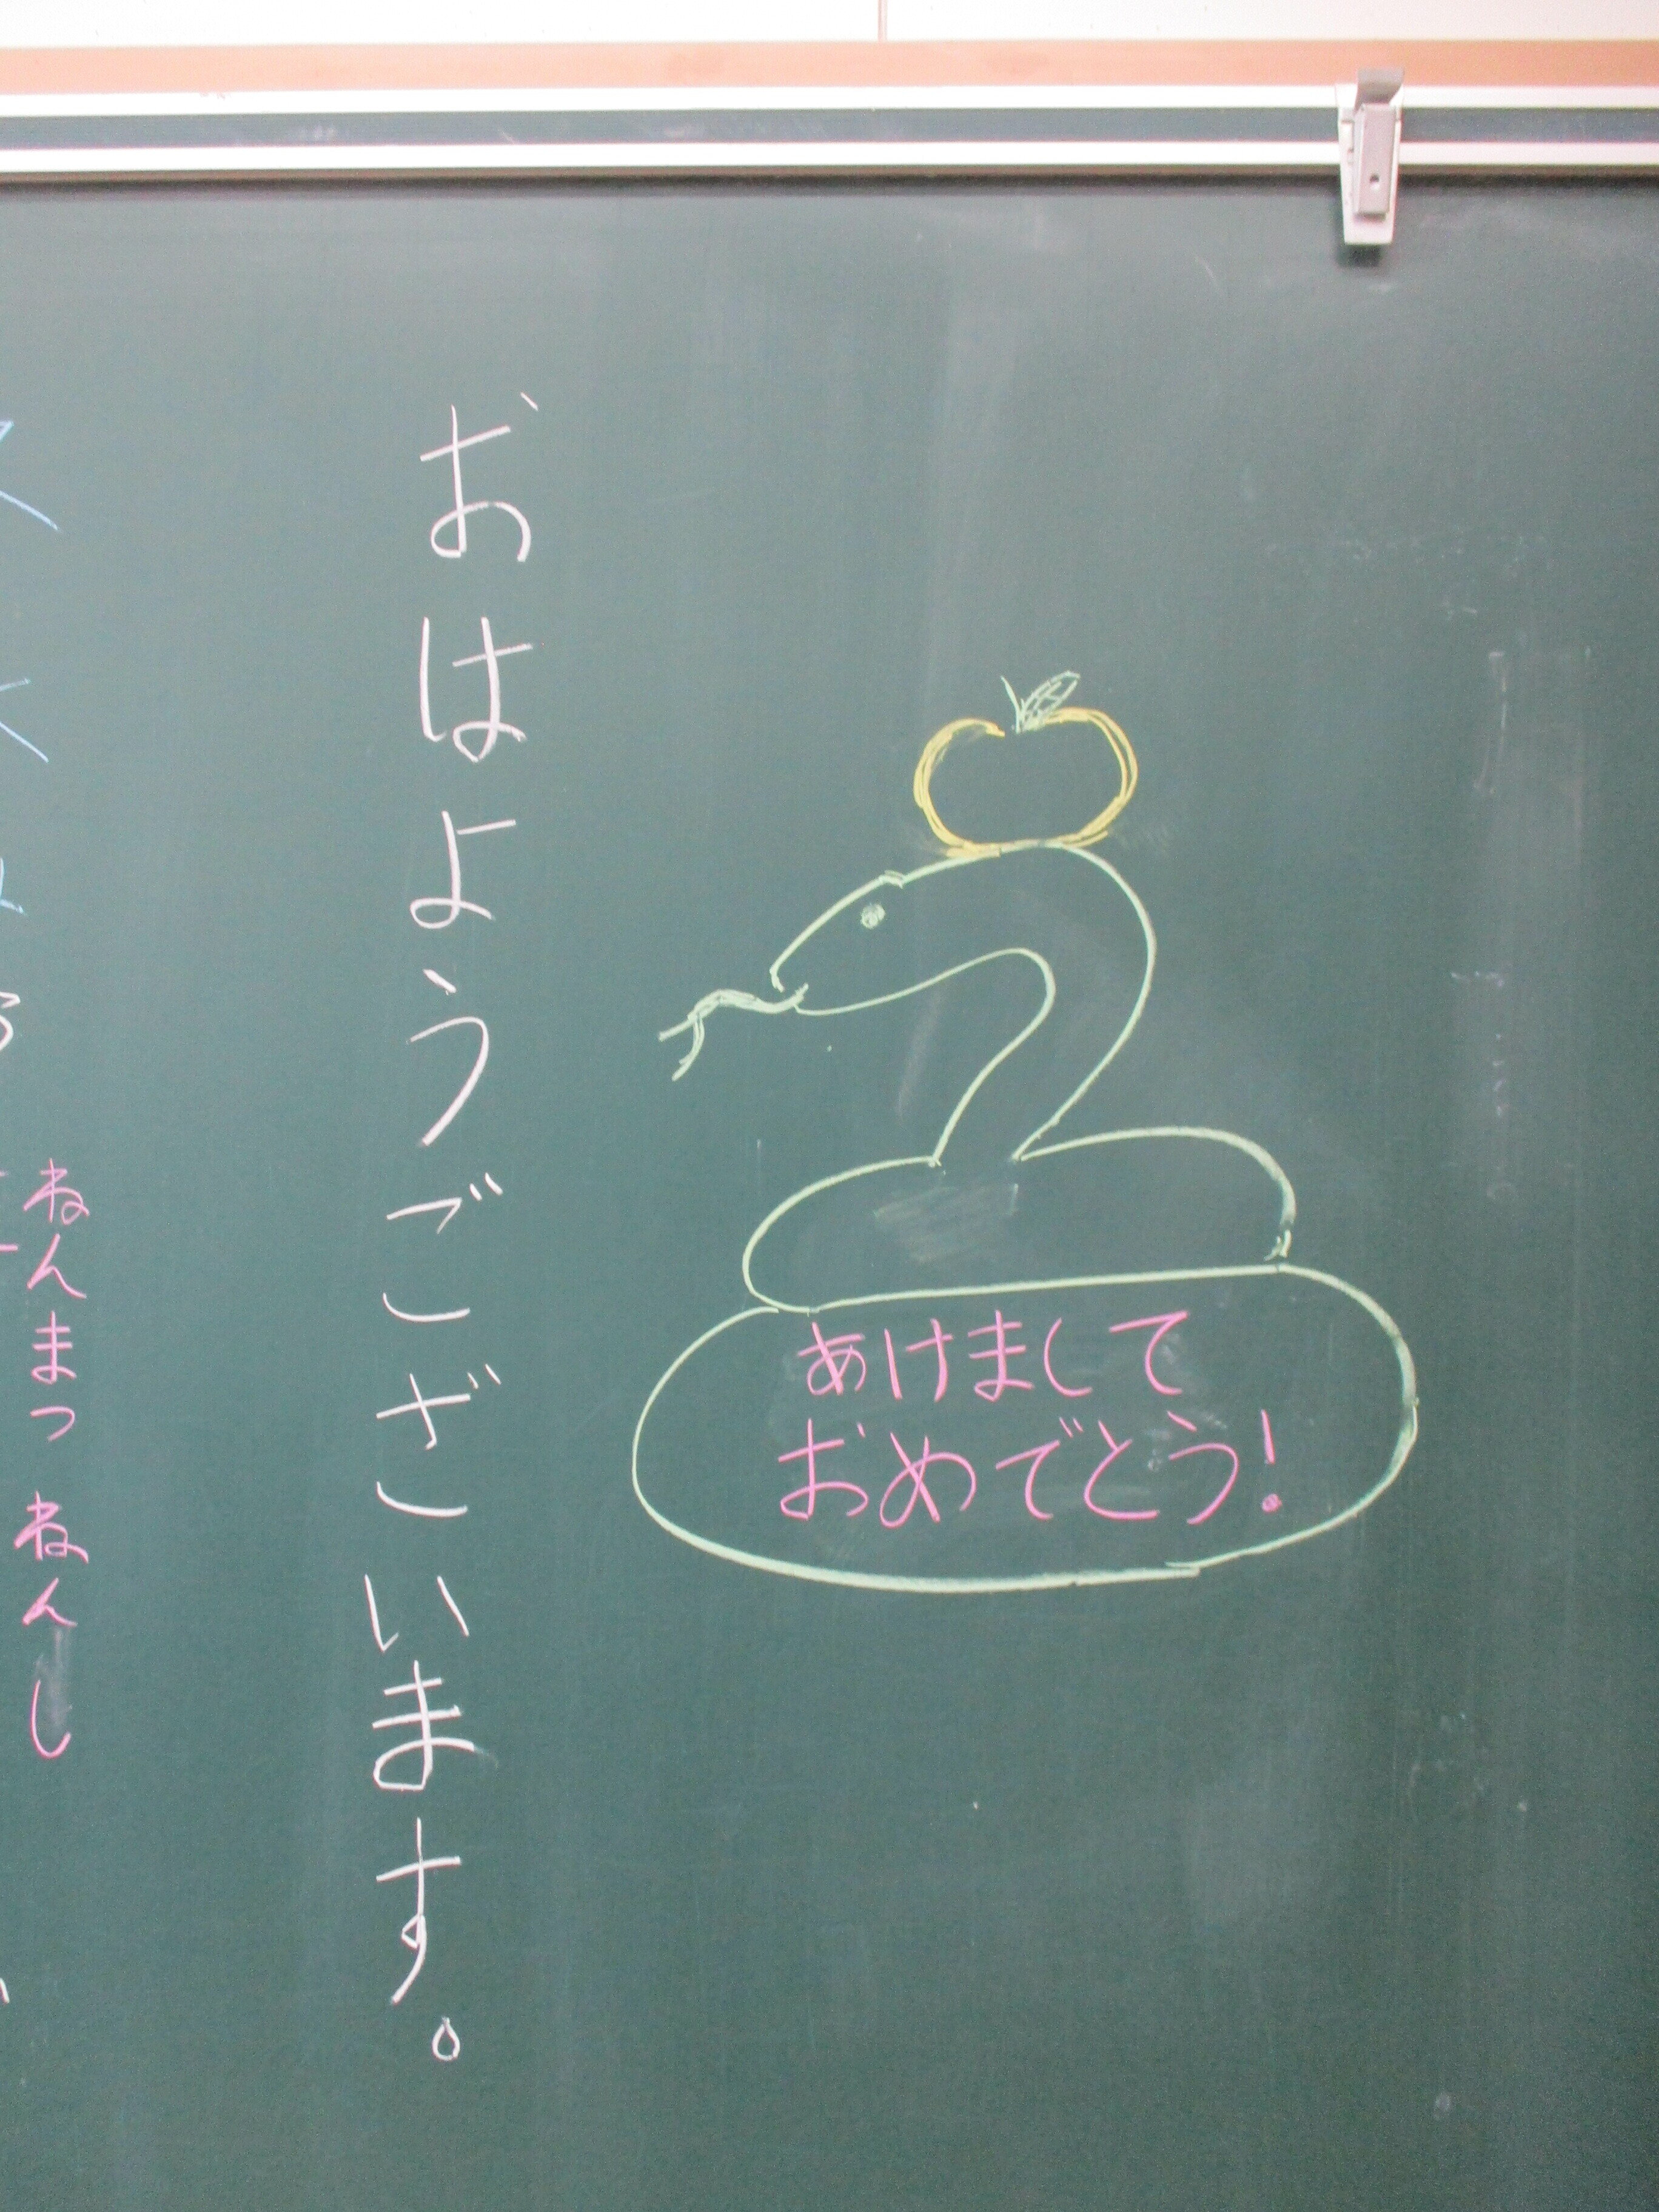 あけまして
おめでとう!
おはようございます。
ねんまつ ねんし